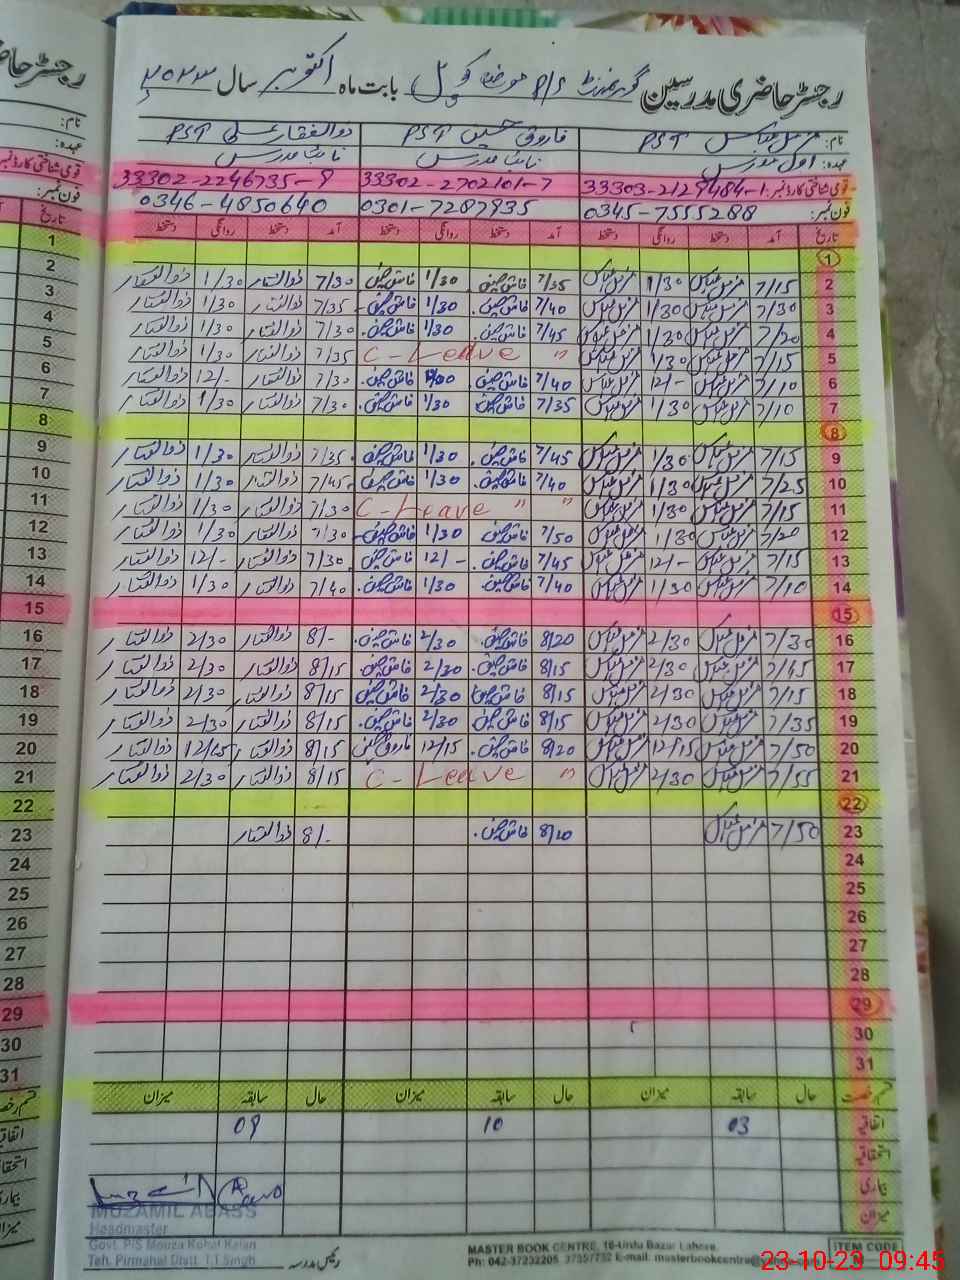 رجسٹر حاضری مدرسین گورنمنٹ P/S موضع کوہل بابت ماہ اکتوبر سال ۲۰۲۳
نام: مزمل عباس PST فاروق حسین PST ذوالفقار علی PST
عہدہ: اول مدرس نائب مدرس نائب مدرس
قومی شناختی کارڈ نمبر: 33303-2129484-1 33302-2702101-7 33302-2246735-9
فون نمبر: 0345-7555288 0301-7287935 0346-4850640
تاریخ آمد دستخط روانگی دستخط آمد دستخط روانگی دستخط آمد دستخط روانگی دستخط
1
2 7/15 مزمل عباس 1/30 مزمل عباس 7/35 فاروق حسین 1/30 فاروق حسین 7/30 ذوالفقار 1/30 ذوالفقار
3 7/30 مزمل عباس 1/30 مزمل عباس 7/40 فاروق حسین 1/30 فاروق حسین 7/35 ذوالفقار 1/30 ذوالفقار
4 7/20 مزمل عباس 1/30 مزمل عباس 7/45 فاروق حسین 1/30 فاروق حسین 7/30 ذوالفقار 1/30 ذوالفقار
5 7/15 مزمل عباس 1/30 مزمل عباس C-Leave " 7/35 ذوالفقار 1/30 ذوالفقار
6 7/10 مزمل عباس 12/- مزمل عباس 7/40 فاروق حسین فاروق حسین 7/30 ذوالفقار 12/- ذوالفقار
7 7/10 مزمل عباس 1/30 مزمل عباس 7/35 فاروق حسین 1/30 فاروق حسین 7/30 ذوالفقار 1/30 ذوالفقار
8
9 7/15 مزمل عباس 1/30 مزمل عباس 7/45 فاروق حسین 1/30 فاروق حسین 7/35 ذوالفقار 1/30 ذوالفقار
10 7/25 مزمل عباس 1/30 مزمل عباس 7/40 فاروق حسین 1/30 فاروق حسین 7/45 ذوالفقار 1/30 ذوالفقار
11 7/15 مزمل عباس 1/30 مزمل عباس C-Leave " " 7/30 ذوالفقار 1/30 ذوالفقار
12 7/20 مزمل عباس 1/30 مزمل عباس 7/50 فاروق حسین 1/30 فاروق حسین 7/30 ذوالفقار 1/30 ذوالفقار
13 7/15 مزمل عباس 12/- مزمل عباس 7/45 فاروق حسین 12/- فاروق حسین 7/30 ذوالفقار 12/- ذوالفقار
14 7/10 مزمل عباس 1/30 مزمل عباس 7/40 فاروق حسین 1/30 فاروق حسین 7/40 ذوالفقار 1/30 ذوالفقار
15
16 7/30 مزمل عباس 2/30 مزمل عباس 8/20 فاروق حسین 2/30 فاروق حسین 8/- ذوالفقار 2/30 ذوالفقار
17 7/45 مزمل عباس 2/30 مزمل عباس 8/15 فاروق حسین 2/30 فاروق حسین 8/15 ذوالفقار 2/30 ذوالفقار
18 7/15 مزمل عباس 2/30 مزمل عباس 8/15 فاروق حسین 2/30 فاروق حسین 8/15 ذوالفقار 2/30 ذوالفقار
19 7/35 مزمل عباس 2/30 مزمل عباس 8/15 فاروق حسین 2/30 فاروق حسین 8/15 ذوالفقار 2/30 ذوالفقار
20 7/50 مزمل عباس 12/15 مزمل عباس 8/20 فاروق حسین 12/15 فاروق حسین 8/15 ذوالفقار ذوالفقار
21 7/55 مزمل عباس 2/30 مزمل عباس C-Leave " 8/15 ذوالفقار 2/30 ذوالفقار
22
23 7/50 مزمل عباس 8/10 فاروق حسین 8/- ذوالفقار
24
25
26
27
28
29
30
31
قسم رخصت حال سابقہ میزان حال سابقہ میزان حال سابقہ میزان
اتفاقیہ 03 10 09
استحقاقیہ
بیماری
میزان
MUZAMIL ABASS
Headmaster
Govt. P/S Mouza Kohal Kalan
Teh. Pirmahal Distt. T.T.Singh
رئیس مدرسہ
MASTER BOOK CENTRE, 16-Urdu Bazar Lahore.
Ph: 042-37232205, 37357732 E-mail: masterbookcentre@
ITEM CODE
23-10-23 09:45
رجسٹر حاضری
نام:
عہدہ:
قومی شناختی کارڈ نمبر
فون نمبر:
تاریخ
1
2
3
4
5
6
7
8
9
10
11
12
13
14
15
16
17
18
19
20
21
22
23
24
25
26
27
28
29
30
31
قسم رخصت
اتفاقیہ
استحقاقیہ
بیماری
میزان